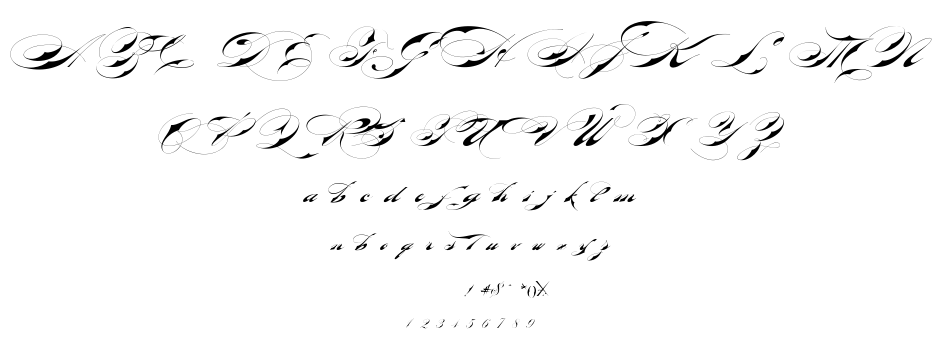 A B C D E F G H I J K L M N
O P Q R S T U V W X Y Z
a b c d e f g h i j k l m
n b o q r s T u v w x y z
1 2 3 4 5 6 7 8 9